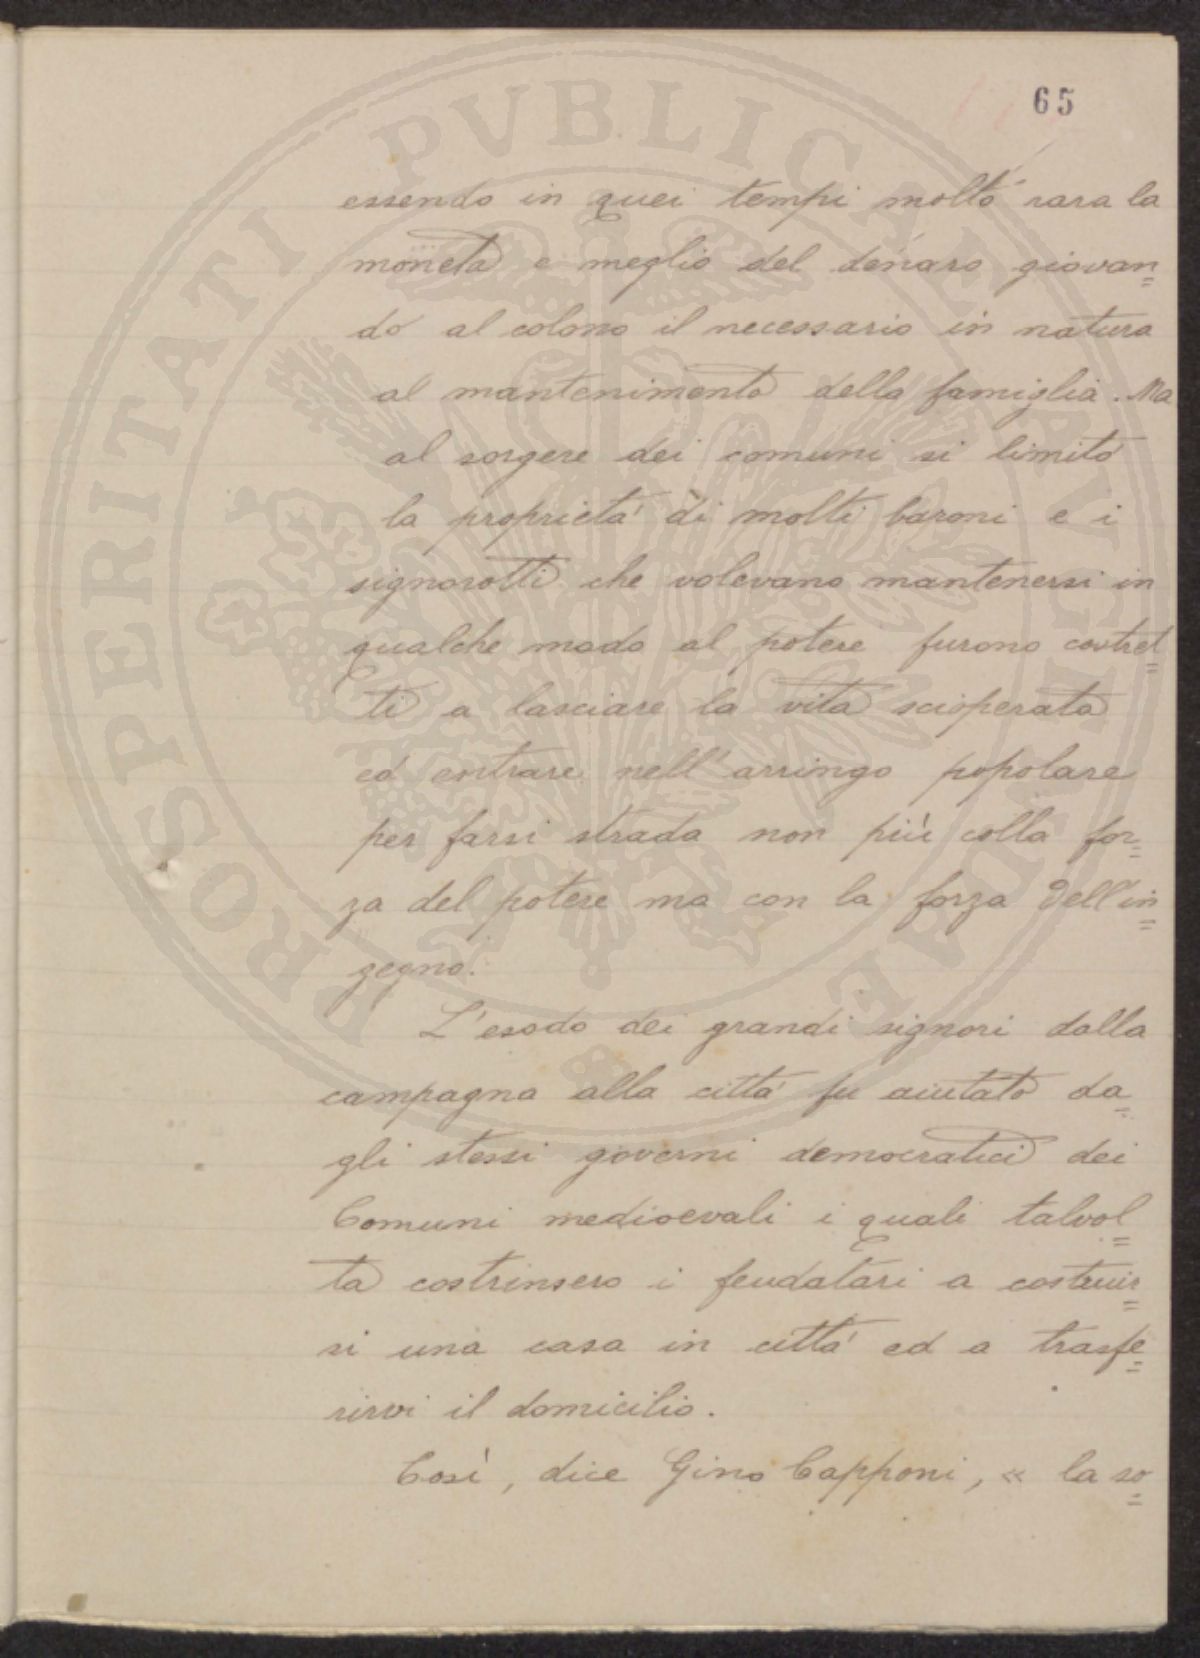 65
essendo in quei tempi molto rara la
moneta e meglio del denaro giovan=
do al colono il necessario in natura
al mantenimento della famiglia. Ma
al sorgere dei comuni si limitò
la proprietà di molti baroni e i
signorotti che volevano mantenersi in
qualche modo al potere furono costret=
ti a lasciare la vita scioperata
ed entrare nell'arringo popolare
per farsi strada non più colla for=
za del potere ma con la forza dell'in=
gegno.
L'esodo dei grandi signori dalla
campagna alla città fu aiutato da=
gli stessi governi democratici dei
Comuni medioevali i quali talvol=
ta costrinsero i feudatari a costruir=
si una casa in città ed a trasfe=
rirvi il domicilio.
Così, dice Gino Capponi, « la so=
PROSPERITATI PVBLICAE AVGENDAE